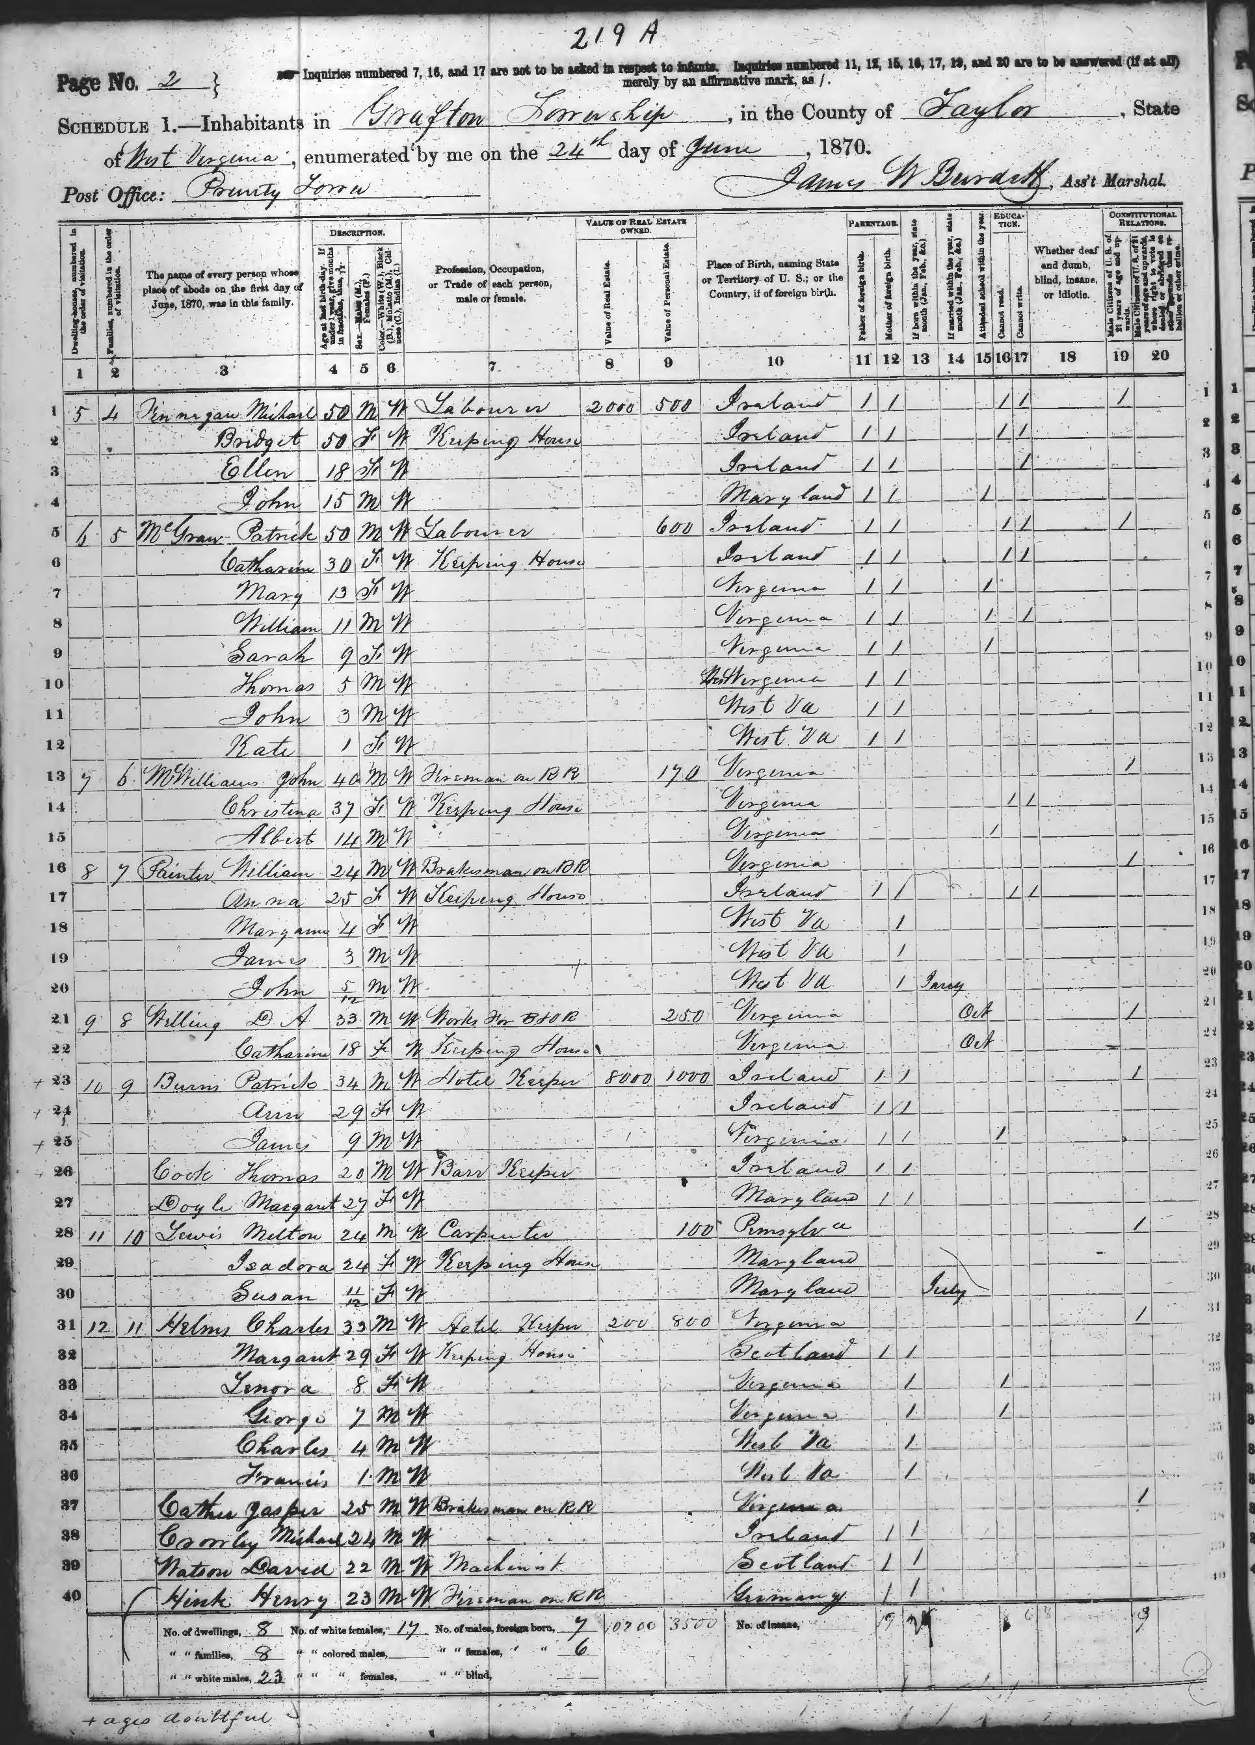 219 A
Page No. 2 } Inquiries numbered 7, 16, and 17 are not to be asked in respect to infants. Inquiries numbered 11, 12, 15, 16, 17, 19, and 20 are to be answered (if at all)
merely by an affirmative mark, as /.
SCHEDULE 1.—Inhabitants in Grafton Township, in the County of Taylor, State
of West Virginia, enumerated by me on the 24th day of June, 1870.
Post Office: Prunty Town James W Burdett, Ass't Marshal.
DESCRIPTION. VALUE OF REAL ESTATE OWNED. PARENTAGE. EDUCATION. CONSTITUTIONAL RELATIONS.
Dwelling-houses, numbered in the order of visitation.
Families, numbered in the order of visitation.
The name of every person whose place of abode on the first day of June, 1870, was in this family.
Age at last birth-day. If under 1 year, give months in fractions, thus, 3/12
Sex.—Males (M.), Females (F.)
Color.—White (W.), Black (B.), Mulatto (M.), Chinese (C.), Indian (I.)
Profession, Occupation, or Trade of each person, male or female.
Value of Real Estate.
Value of Personal Estate.
Place of Birth, naming State or Territory of U. S.; or the Country, if of foreign birth.
Father of foreign birth.
Mother of foreign birth.
If born within the year, state month (Jan., Feb., &c.)
If married within the year, state month (Jan., Feb., &c.)
Attended school within the year.
Cannot read.
Cannot write.
Whether deaf and dumb, blind, insane, or idiotic.
Male Citizens of U. S. of 21 years of age and upwards.
Male Citizens of U. S. of 21 years of age and upwards, where right to vote is denied or abridged on other grounds than rebellion or other crime.
1 2 3 4 5 6 7 8 9 10 11 12 13 14 15 16 17 18 19 20
1 5 4 Finnegan Michael 50 M W Labourer 2000 500 Ireland / / / / / 1
2 Bridget 50 F W Keeping House Ireland / / / / 2
3 Ellen 18 F W Ireland / / / 3
4 John 15 M W Maryland / / / 4
5 6 5 McGraw Patrick 50 M W Labourer 600 Ireland / / / / / 5
6 Catharine 30 F W Keeping House Ireland / / / / 6
7 Mary 13 F W Virginia / / / 7
8 William 11 M W Virginia / / / / 8
9 Sarah 9 F W Virginia / / / 9
10 Thomas 5 M W West Virginia / / 10
11 John 3 M W West Va / / 11
12 Kate 1 F W West Va / / 12
13 7 6 McWilliams John 40 M W Fireman on RR 170 Virginia / 13
14 Christina 37 F W Keeping House Virginia / / 14
15 Albert 14 M W Virginia / 15
16 8 7 Painter William 24 M W Brakesman on RR Virginia / 16
17 Anna 25 F W Keeping House Ireland / / / / 17
18 Margaret 4 F W West Va / 18
19 James 3 M W West Va / 19
20 John 5/12 M W West Va / 20
21 9 8 Welling D A 33 M W Works For B&OR 250 Virginia Oct / 21
22 Catharine 18 F W Keeping House Virginia Oct 22
+ 23 10 9 Burns Patrick 34 M W Hotel Keeper 8000 1000 Ireland / / / 23
+ 24 Ann 29 F W Ireland / / 24
+ 25 James 9 M W Virginia / / / 25
26 Cook Thomas 20 M W Barr Keeper Ireland / / 26
27 Doyle Margaret 27 F W Maryland / / 27
28 11 10 Lewis Melton 24 M W Carpenter 100 Pensylva / 28
29 Isadora 24 F W Keeping House Maryland 29
30 Susan 11/12 F W Maryland July 30
31 12 11 Helms Charles 33 M W Hotel Keeper 200 800 Virginia / 31
32 Margaret 29 F W Keeping House Scotland / / 32
33 Lenora 8 F W Virginia / / 33
34 George 7 M W Virginia / / 34
35 Charles 4 M W West Va /
36 Francis 1 M W West Va /
37 Cather Jasper 25 M W Brakesman on RR Virginia /
38 Crowley Michael 24 M W Ireland / /
39 Watson David 22 M W Machinist Scotland / /
40 Hink Henry 23 M W Fireman on RR Germany / /
No. of dwellings, 8 No. of white females, 17 No. of males, foreign born, 7 10200 3500 No. of insane, 19
" " families, 8 " " colored males, " " females, " " 6
" " white males, 23 " " " females, " " blind,
+ ages doubtful